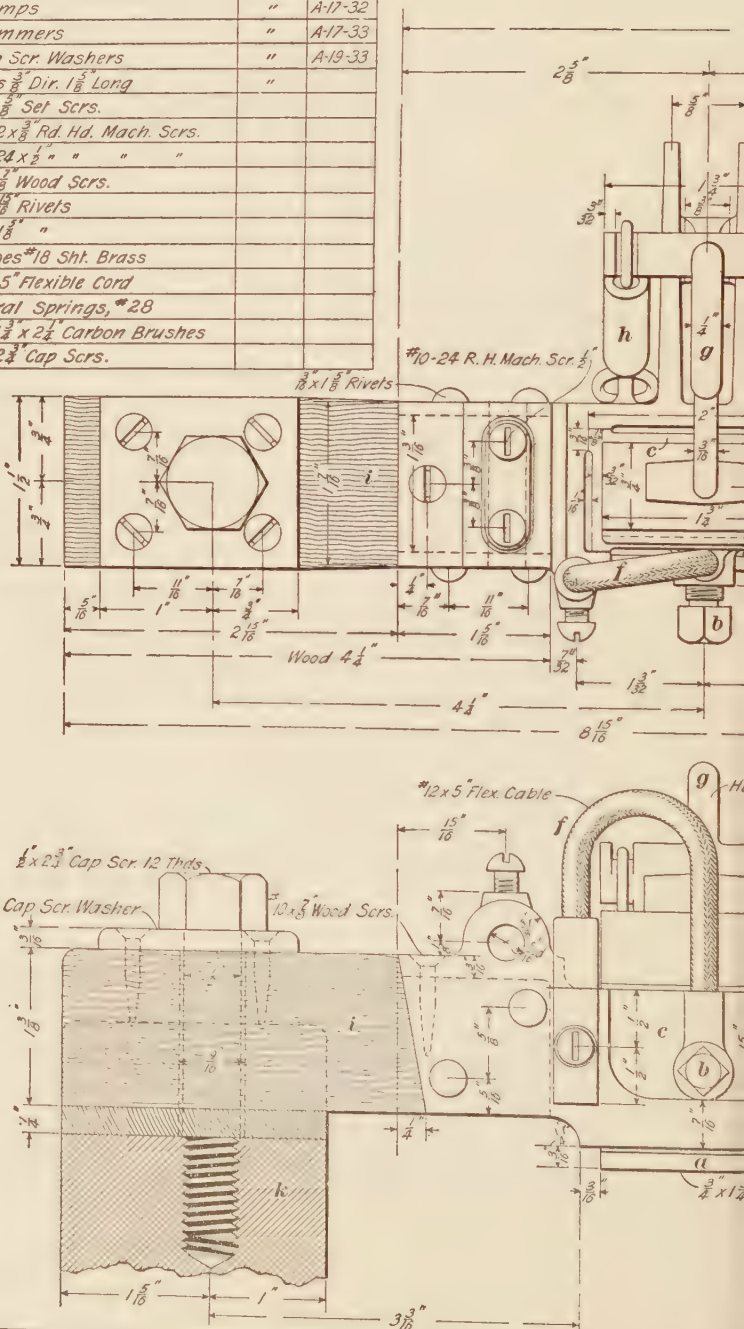 mps " A-17-32
mmers " A-17-33
Scr. Washers " A-19-33
s 3/8" Dir. 1 5/8" Long "
5/8" Set Scrs.
2 x 3/8" Rd. Hd. Mach. Scrs.
24 x 1/2" " " "
7/8" Wood Scrs.
15/16" Rivets
1 5/8" "
es #18 Sht. Brass
5" Flexible Cord
ral Springs, #28
3/4" x 2 1/4" Carbon Brushes
2 3/4" Cap Scrs.
2 5/8"
5/8"
3/32"
h
1/4"
g
#10-24 R. H. Mach. Scr. 1/2"
3/16" x 1 5/8" Rivets
2"
c
3/16"
1 1/2"
3/4"
3/4"
7/16"
7/16"
1 7/16"
i
1 3/16"
3/8"
3/8"
3/4"
1 3/4"
f
b
5/16"
11/16"
7/16"
1"
3/4"
1/4"
7/16"
11/16"
2 15/16"
1 5/16"
Wood 4 1/4"
7/32"
1 3/32"
4 1/4"
8 15/16"
#12 x 5" Flex. Cable
g
f
15/16"
1/2" x 2 3/4" Cap Scr. 12 Thds.
Cap Scr. Washer
#10 x 7/8" Wood Scrs.
7/16"
3/16"
3/16"
1 3/8"
i
5/8"
5/16"
c
1/2"
1/2"
b
1/4"
1/4"
7/16"
3/16"
a
3/16"
3/4" x 1 1/4
k
1 5/16"
1"
3 3/16"